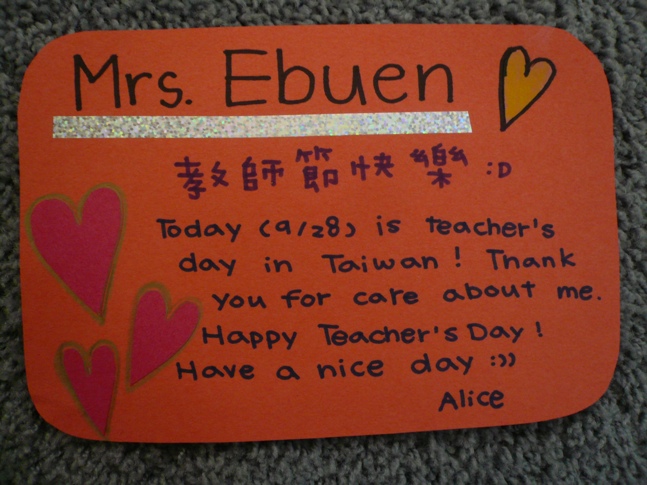 Mrs. Ebuen
教師節快樂 :D
Today (9/28) is teacher's
day in Taiwan! Thank
you for care about me.
Happy Teacher's Day!
Have a nice day :))
Alice